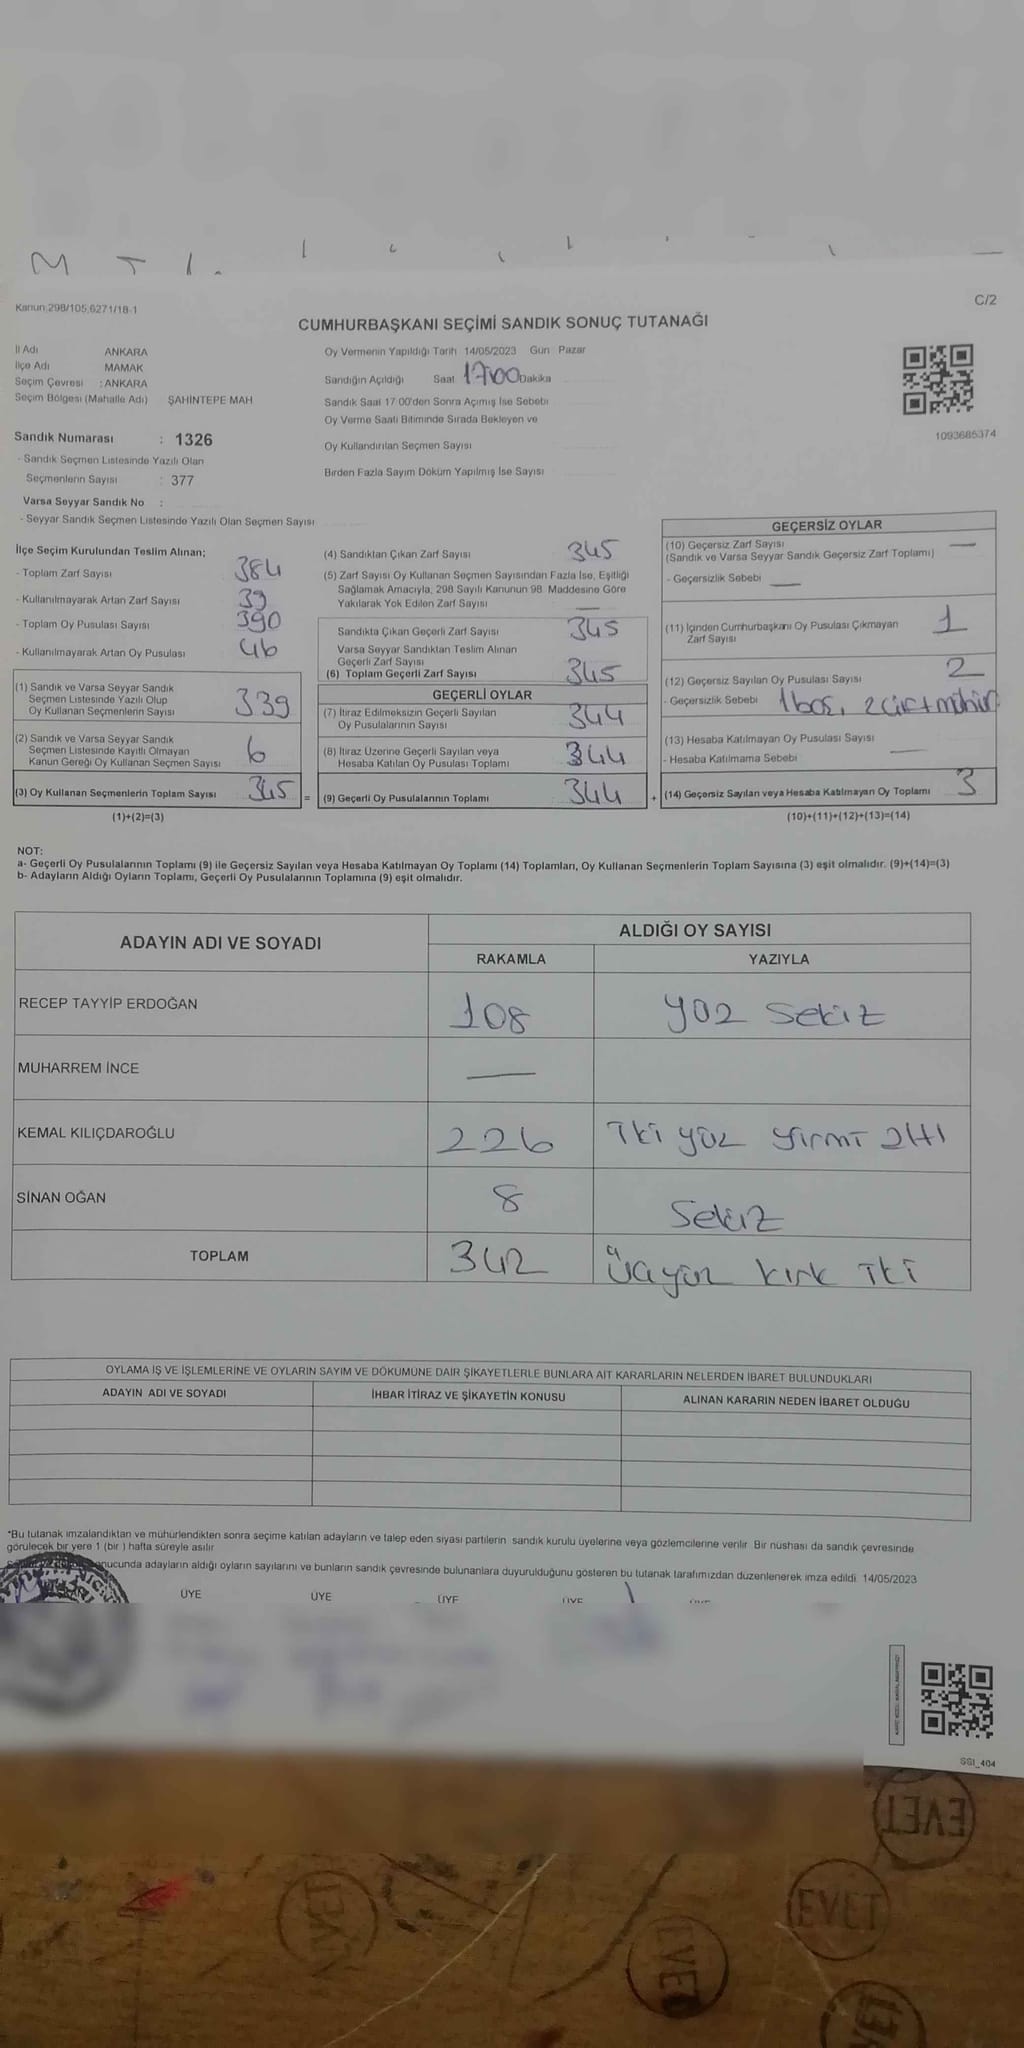 Kanun:298/105,6271/18-1
C/2
CUMHURBAŞKANI SEÇİMİ SANDIK SONUÇ TUTANAĞI
İl Adı ANKARA
İlçe Adı MAMAK
Seçim Çevresi : ANKARA
Seçim Bölgesi (Mahalle Adı) ŞAHİNTEPE MAH
Oy Vermenin Yapıldığı Tarih 14/05/2023 Gün Pazar
Sandığın Açıldığı Saat 17:00 Dakika
Sandık Saat 17:00'den Sonra Açımış İse Sebebi
Oy Verme Saati Bitiminde Sırada Bekleyen ve
Oy Kullandırılan Seçmen Sayısı
Birden Fazla Sayım Döküm Yapılmış İse Sayısı
1093685374
Sandık Numarası : 1326
- Sandık Seçmen Listesinde Yazılı Olan
Seçmenlerin Sayısı : 377
Varsa Seyyar Sandık No :
- Seyyar Sandık Seçmen Listesinde Yazılı Olan Seçmen Sayısı
İlçe Seçim Kurulundan Teslim Alınan;
- Toplam Zarf Sayısı 384
- Kullanılmayarak Artan Zarf Sayısı 39
- Toplam Oy Pusulası Sayısı 390
- Kullanılmayarak Artan Oy Pusulası 46
(1) Sandık ve Varsa Seyyar Sandık
Seçmen Listesinde Yazılı Olup
Oy Kullanan Seçmenlerin Sayısı 339
(2) Sandık ve Varsa Seyyar Sandık
Seçmen Listesinde Kayıtlı Olmayan
Kanun Gereği Oy Kullanan Seçmen Sayısı 6
(3) Oy Kullanan Seçmenlerin Toplam Sayısı 345 =
(1)+(2)=(3)
(4) Sandıktan Çıkan Zarf Sayısı 345
(5) Zarf Sayısı Oy Kullanan Seçmen Sayısından Fazla İse, Eşitliği
Sağlamak Amacıyla, 298 Sayılı Kanunun 98. Maddesine Göre
Yakılarak Yok Edilen Zarf Sayısı —
Sandıkta Çıkan Geçerli Zarf Sayısı 345
Varsa Seyyar Sandıktan Teslim Alınan
Geçerli Zarf Sayısı
(6) Toplam Geçerli Zarf Sayısı 345
GEÇERLİ OYLAR
(7) İtiraz Edilmeksizin Geçerli Sayılan
Oy Pusulalarının Sayısı 344
(8) İtiraz Üzerine Geçerli Sayılan veya
Hesaba Katılan Oy Pusulası Toplamı 344
(9) Geçerli Oy Pusulalarının Toplamı 344 +
GEÇERSİZ OYLAR
(10) Geçersiz Zarf Sayısı —
(Sandık ve Varsa Seyyar Sandık Geçersiz Zarf Toplamı)
- Geçersizlik Sebebi —
(11) İçinden Cumhurbaşkanı Oy Pusulası Çıkmayan
Zarf Sayısı 1
(12) Geçersiz Sayılan Oy Pusulası Sayısı 2
- Geçersizlik Sebebi 1 boş, 2 çift mühür
(13) Hesaba Katılmayan Oy Pusulası Sayısı
- Hesaba Katılmama Sebebi —
(14) Geçersiz Sayılan veya Hesaba Katılmayan Oy Toplamı 3
(10)+(11)+(12)+(13)=(14)
NOT:
a- Geçerli Oy Pusulalarının Toplamı (9) ile Geçersiz Sayılan veya Hesaba Katılmayan Oy Toplamı (14) Toplamları, Oy Kullanan Seçmenlerin Toplam Sayısına (3) eşit olmalıdır. (9)+(14)=(3)
b- Adayların Aldığı Oyların Toplamı, Geçerli Oy Pusulalarının Toplamına (9) eşit olmalıdır.
ADAYIN ADI VE SOYADI
ALDIĞI OY SAYISI
RAKAMLA YAZIYLA
RECEP TAYYİP ERDOĞAN 108 yüz sekiz
MUHARREM İNCE —
KEMAL KILIÇDAROĞLU 226 iki yüz yirmi altı
SİNAN OĞAN 8 Sekiz
TOPLAM 342 üçyüz kırk iki
OYLAMA İŞ VE İŞLEMLERİNE VE OYLARIN SAYIM VE DÖKÜMÜNE DAİR ŞİKAYETLERLE BUNLARA AİT KARARLARIN NELERDEN İBARET BULUNDUKLARI
ADAYIN ADI VE SOYADI İHBAR İTİRAZ VE ŞİKAYETİN KONUSU ALINAN KARARIN NEDEN İBARET OLDUĞU
*Bu tutanak imzalandıktan ve mühürlendikten sonra seçime katılan adayların ve talep eden siyasi partilerin sandık kurulu üyelerine veya gözlemcilerine verilir. Bir nüshası da sandık çevresinde
görülecek bir yere 1 (bir ) hafta süreyle asılır
adayların aldığı oyların sayılarını ve bunların sandık çevresinde bulunanlara duyurulduğunu gösteren bu tutanak tarafımızdan düzenlenerek imza edildi. 14/05/2023
ÜYE ÜYE ÜYE ÜYE
SGI_404
EVET
EVET
EVET
EVET